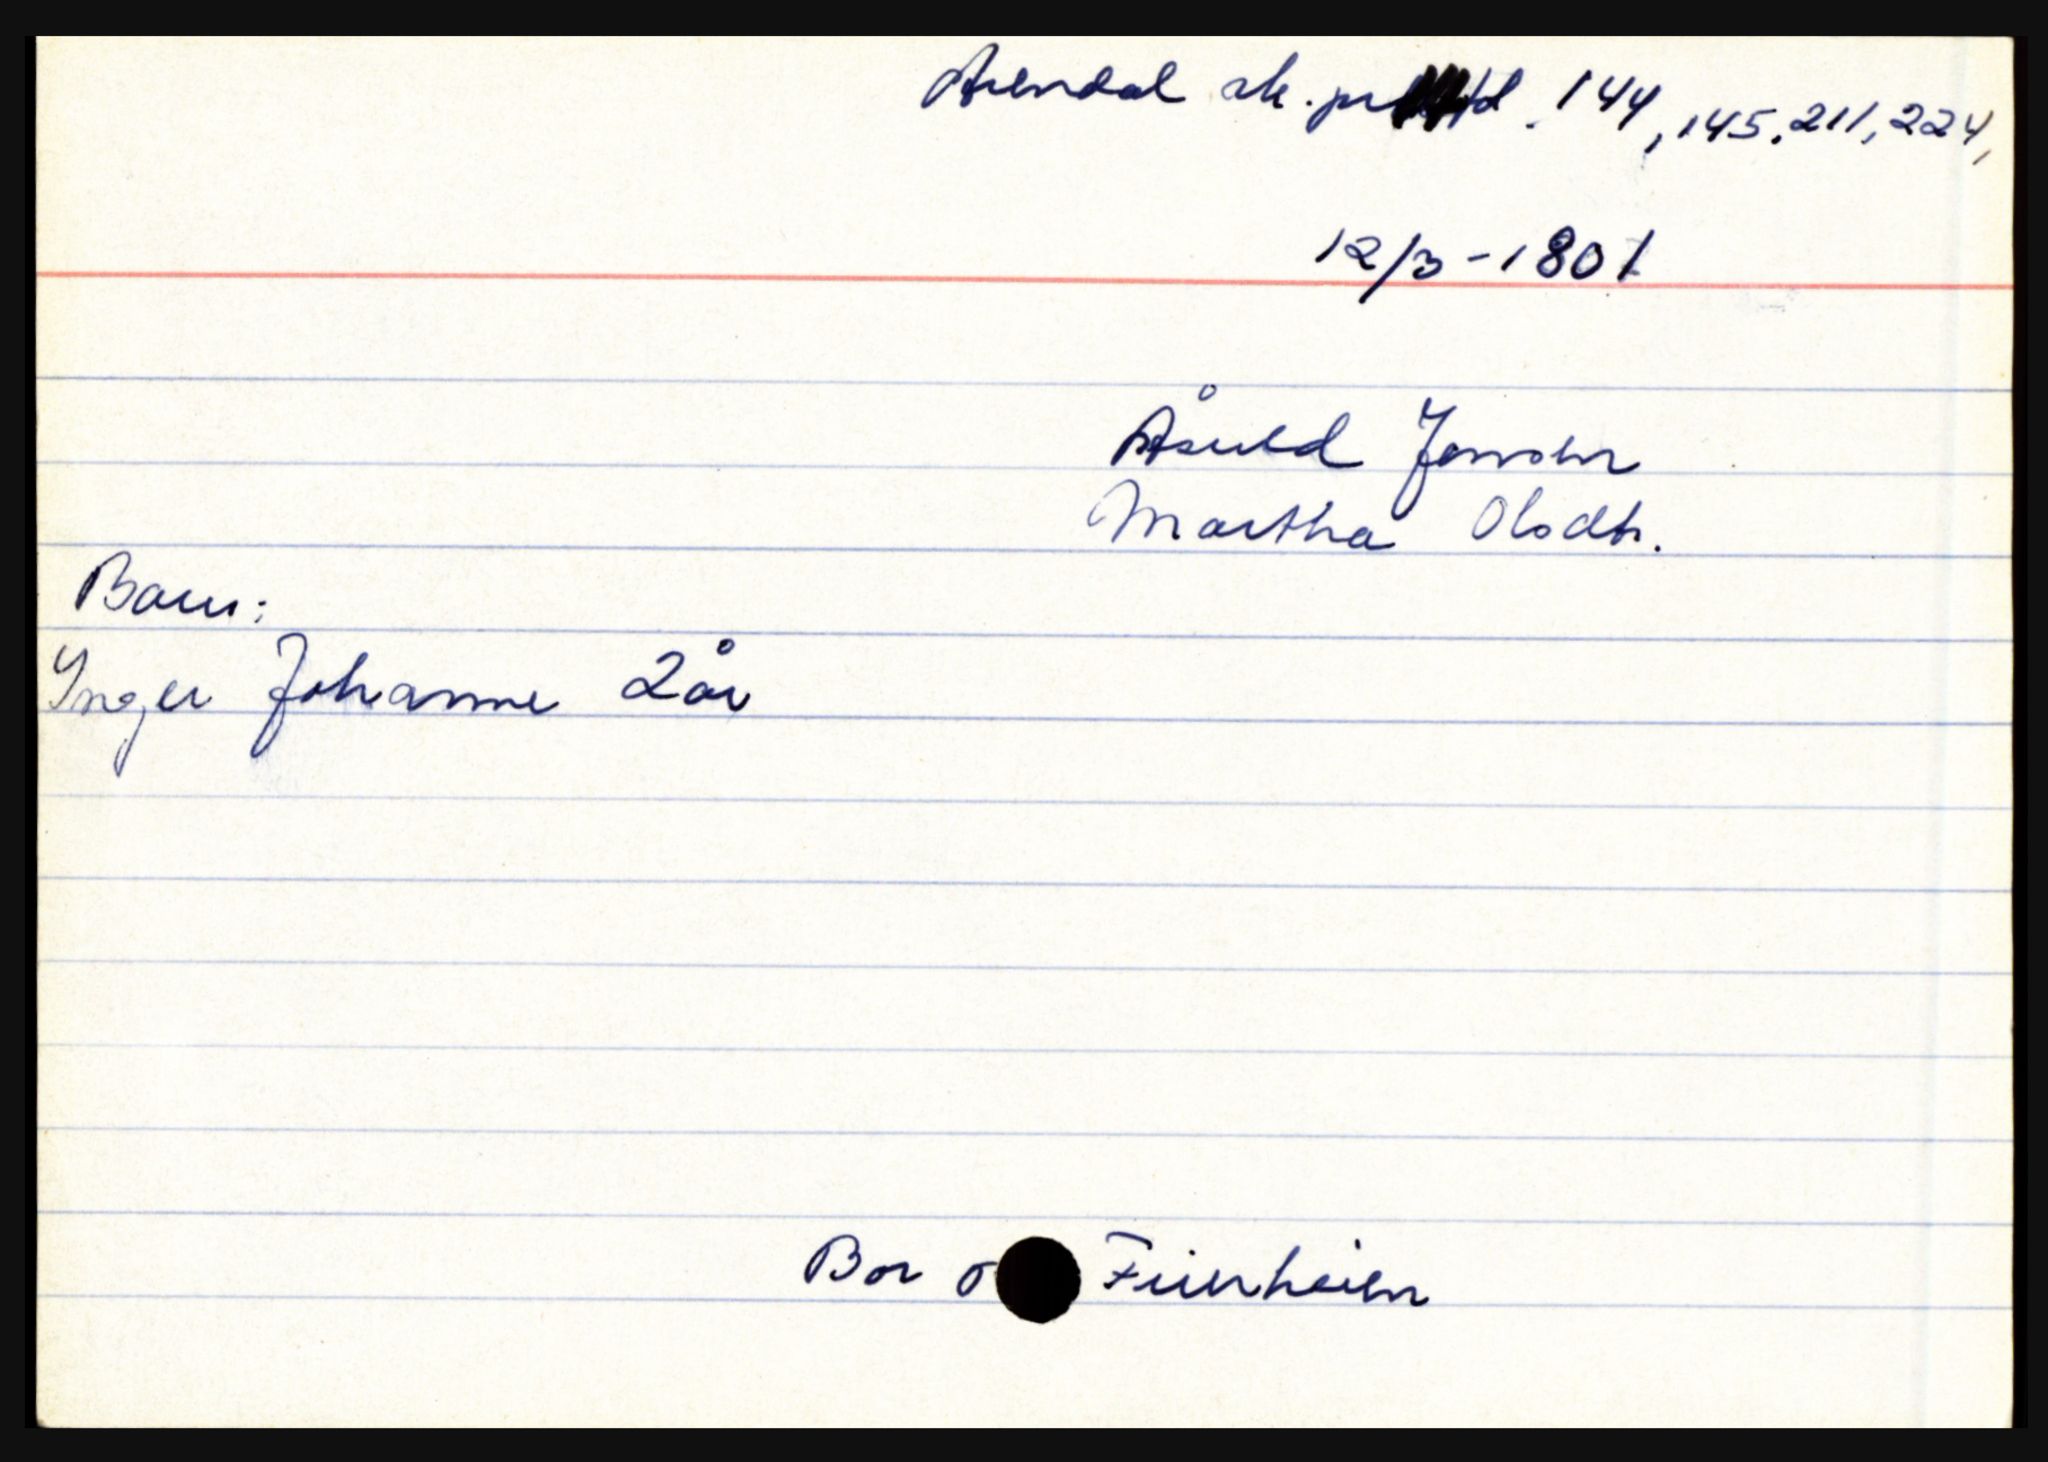 Arendal sk. 144, 145, 211, 224,
12/3-1801
Åsuld Jensen
Martha Olsdtr.
Barn:
Inger Johanne 2 år
Bor Feierheien